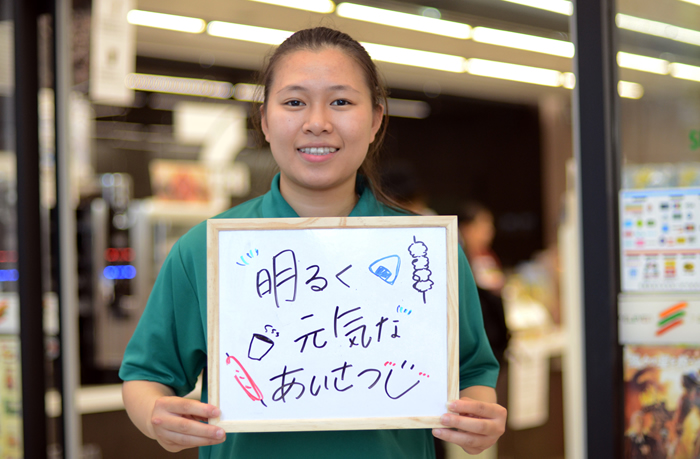 明るく
元気な
あいさつ